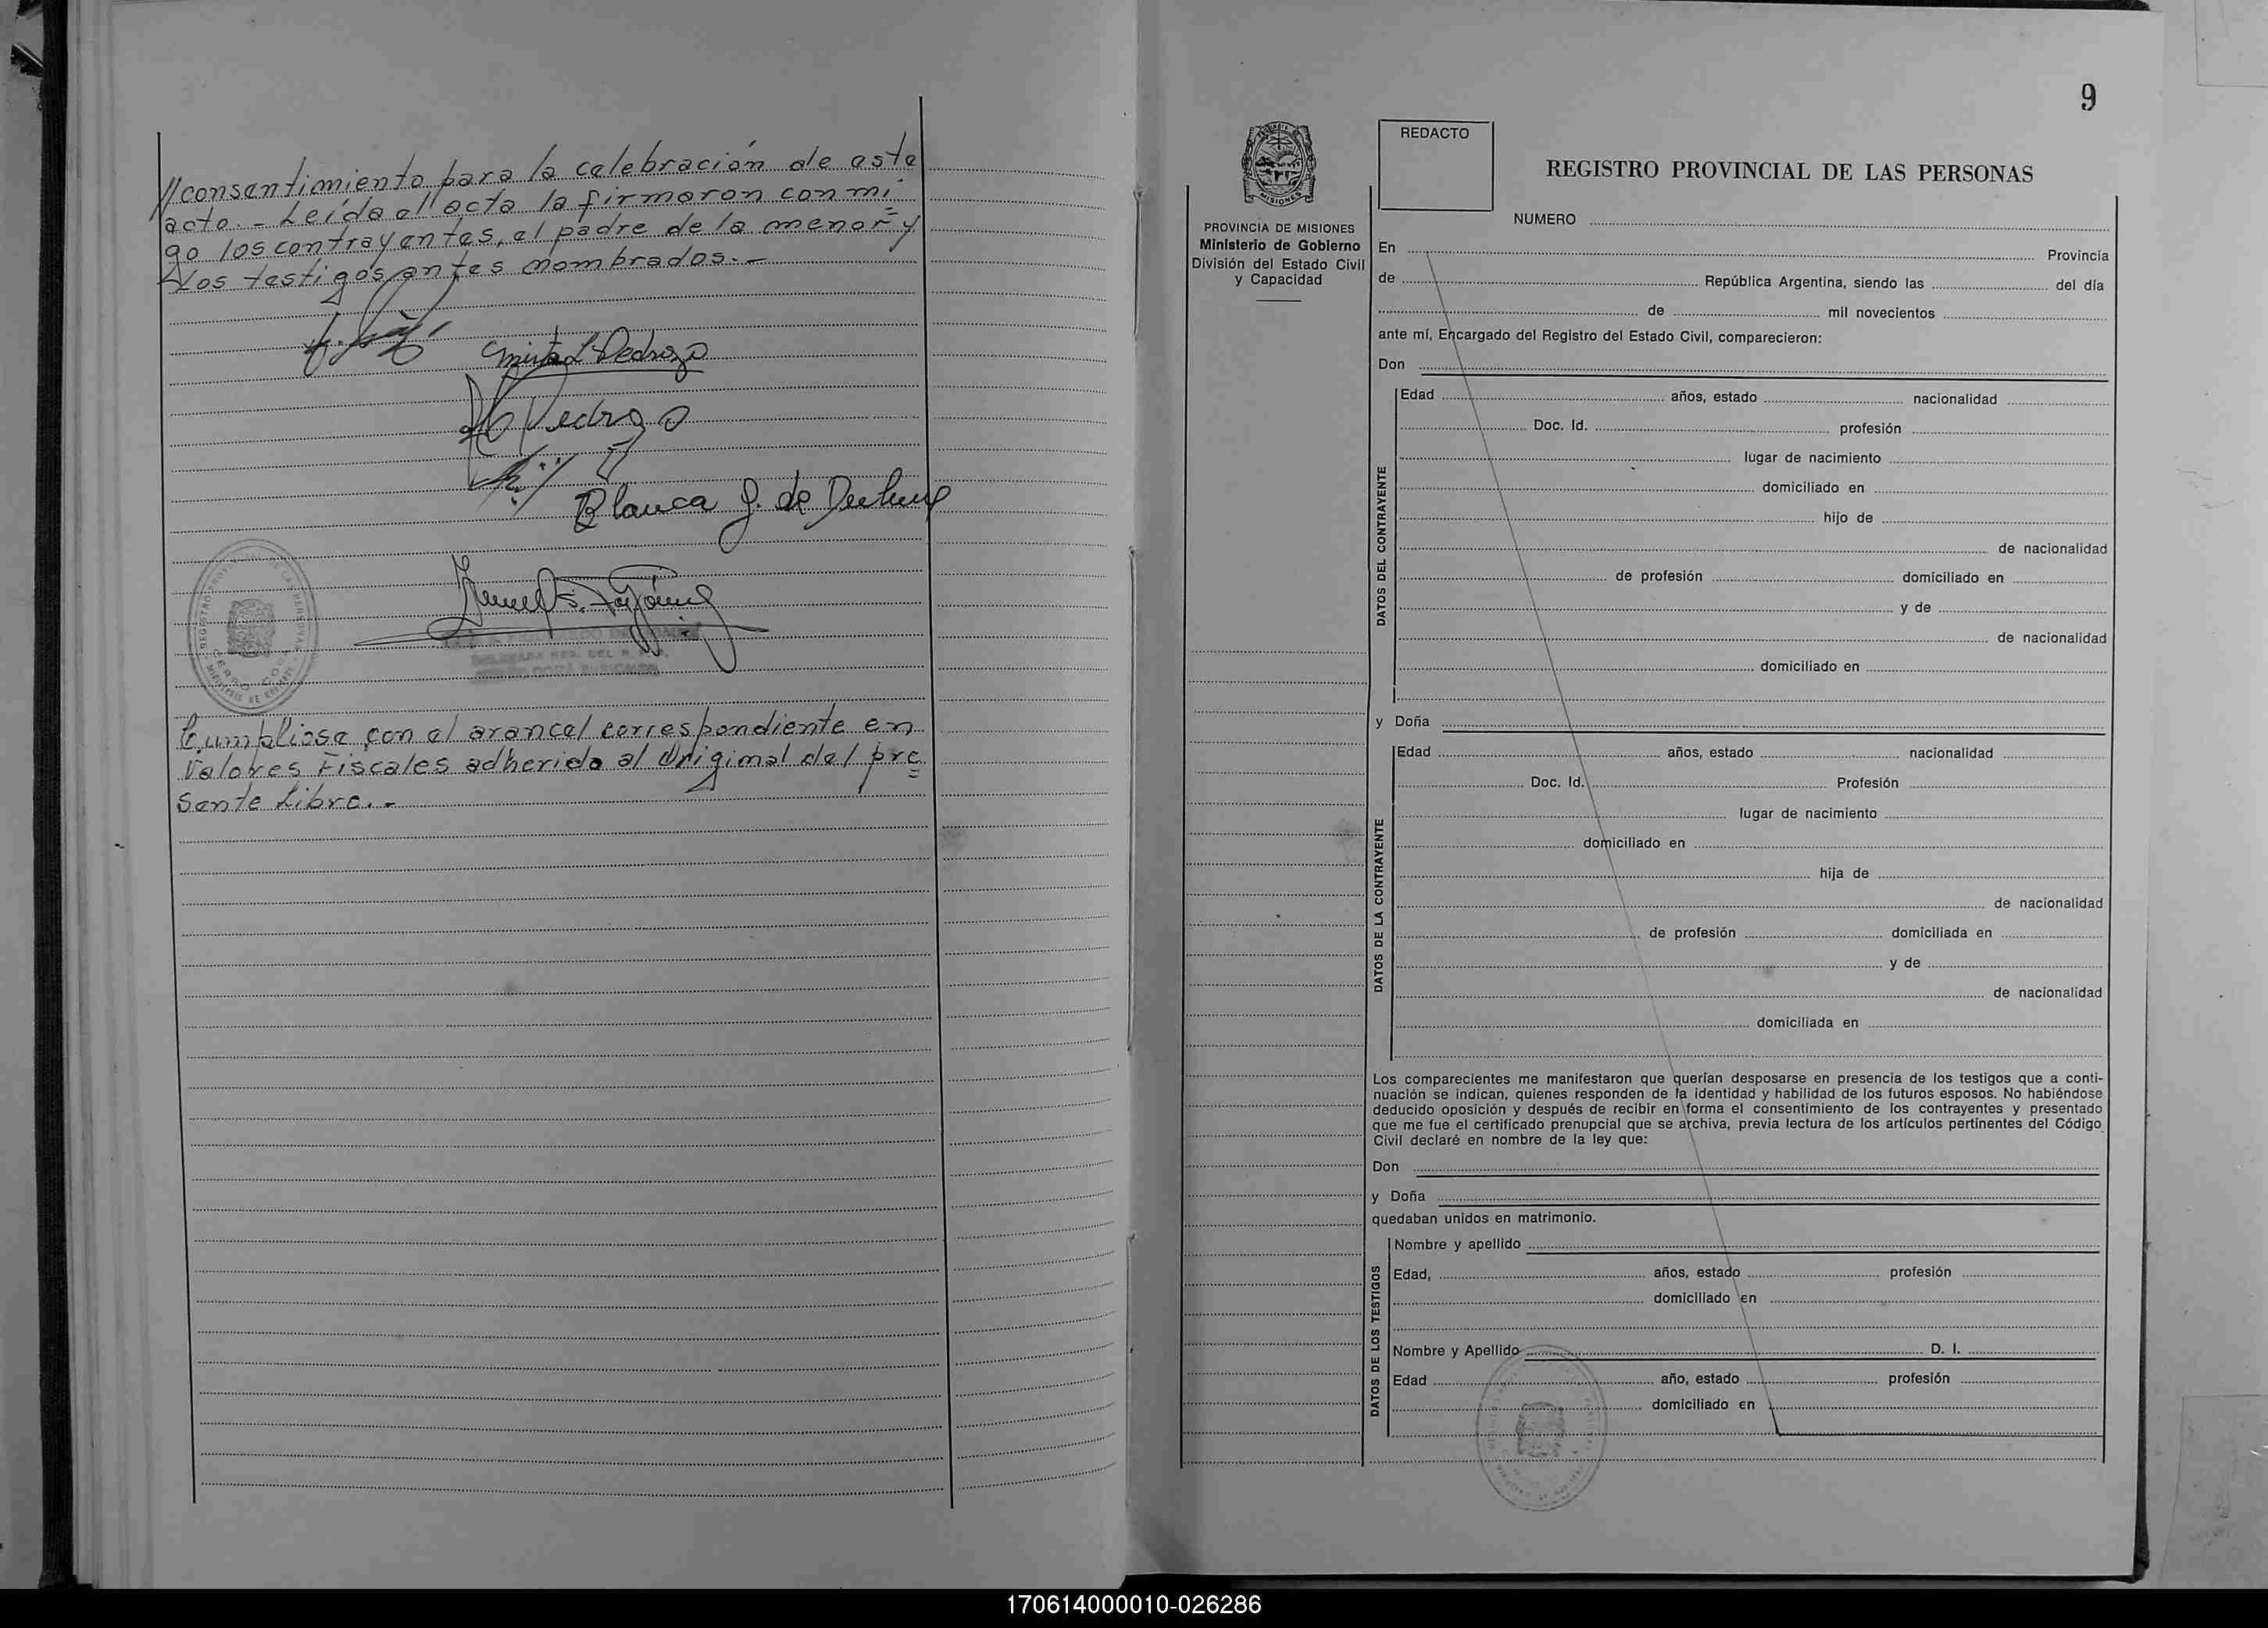 //consentimiento para la celebración de este
acto.- Leída el acta la firmaron conmi=
go los contrayentes, el padre de la menor y
los testigos antes nombrados.-
Mirta L Pedrozo
Pedrozo
Blanca J. de
Cumpliose con el arancel correspondiente en
Valores Fiscales adherido al Original del pre=
sente Libro.-
9
REDACTO
REGISTRO PROVINCIAL DE LAS PERSONAS
MISIONES
PROVINCIA DE MISIONES
Ministerio de Gobierno
División del Estado Civil
y Capacidad
NUMERO
En Provincia
de República Argentina, siendo las del día
de mil novecientos
ante mí, Encargado del Registro del Estado Civil, comparecieron:
Don
DATOS DEL CONTRAYENTE
Edad años, estado nacionalidad
Doc. Id. profesión
lugar de nacimiento
domiciliado en
hijo de
de nacionalidad
de profesión domiciliado en
y de
de nacionalidad
domiciliado en
y Doña
DATOS DE LA CONTRAYENTE
Edad años, estado nacionalidad
Doc. Id. Profesión
lugar de nacimiento
domiciliado en
hija de
de nacionalidad
de profesión domiciliada en
y de
de nacionalidad
domiciliada en
Los comparecientes me manifestaron que querían desposarse en presencia de los testigos que a conti-
nuación se indican, quienes responden de la identidad y habilidad de los futuros esposos. No habiéndose
deducido oposición y después de recibir en forma el consentimiento de los contrayentes y presentado
que me fue el certificado prenupcial que se archiva, previa lectura de los artículos pertinentes del Código
Civil declaré en nombre de la ley que:
Don
y Doña
quedaban unidos en matrimonio.
DATOS DE LOS TESTIGOS
Nombre y apellido
Edad, años, estado profesión
domiciliado en
Nombre y Apellido D. I.
Edad año, estado profesión
domiciliado en
170614000010-026286